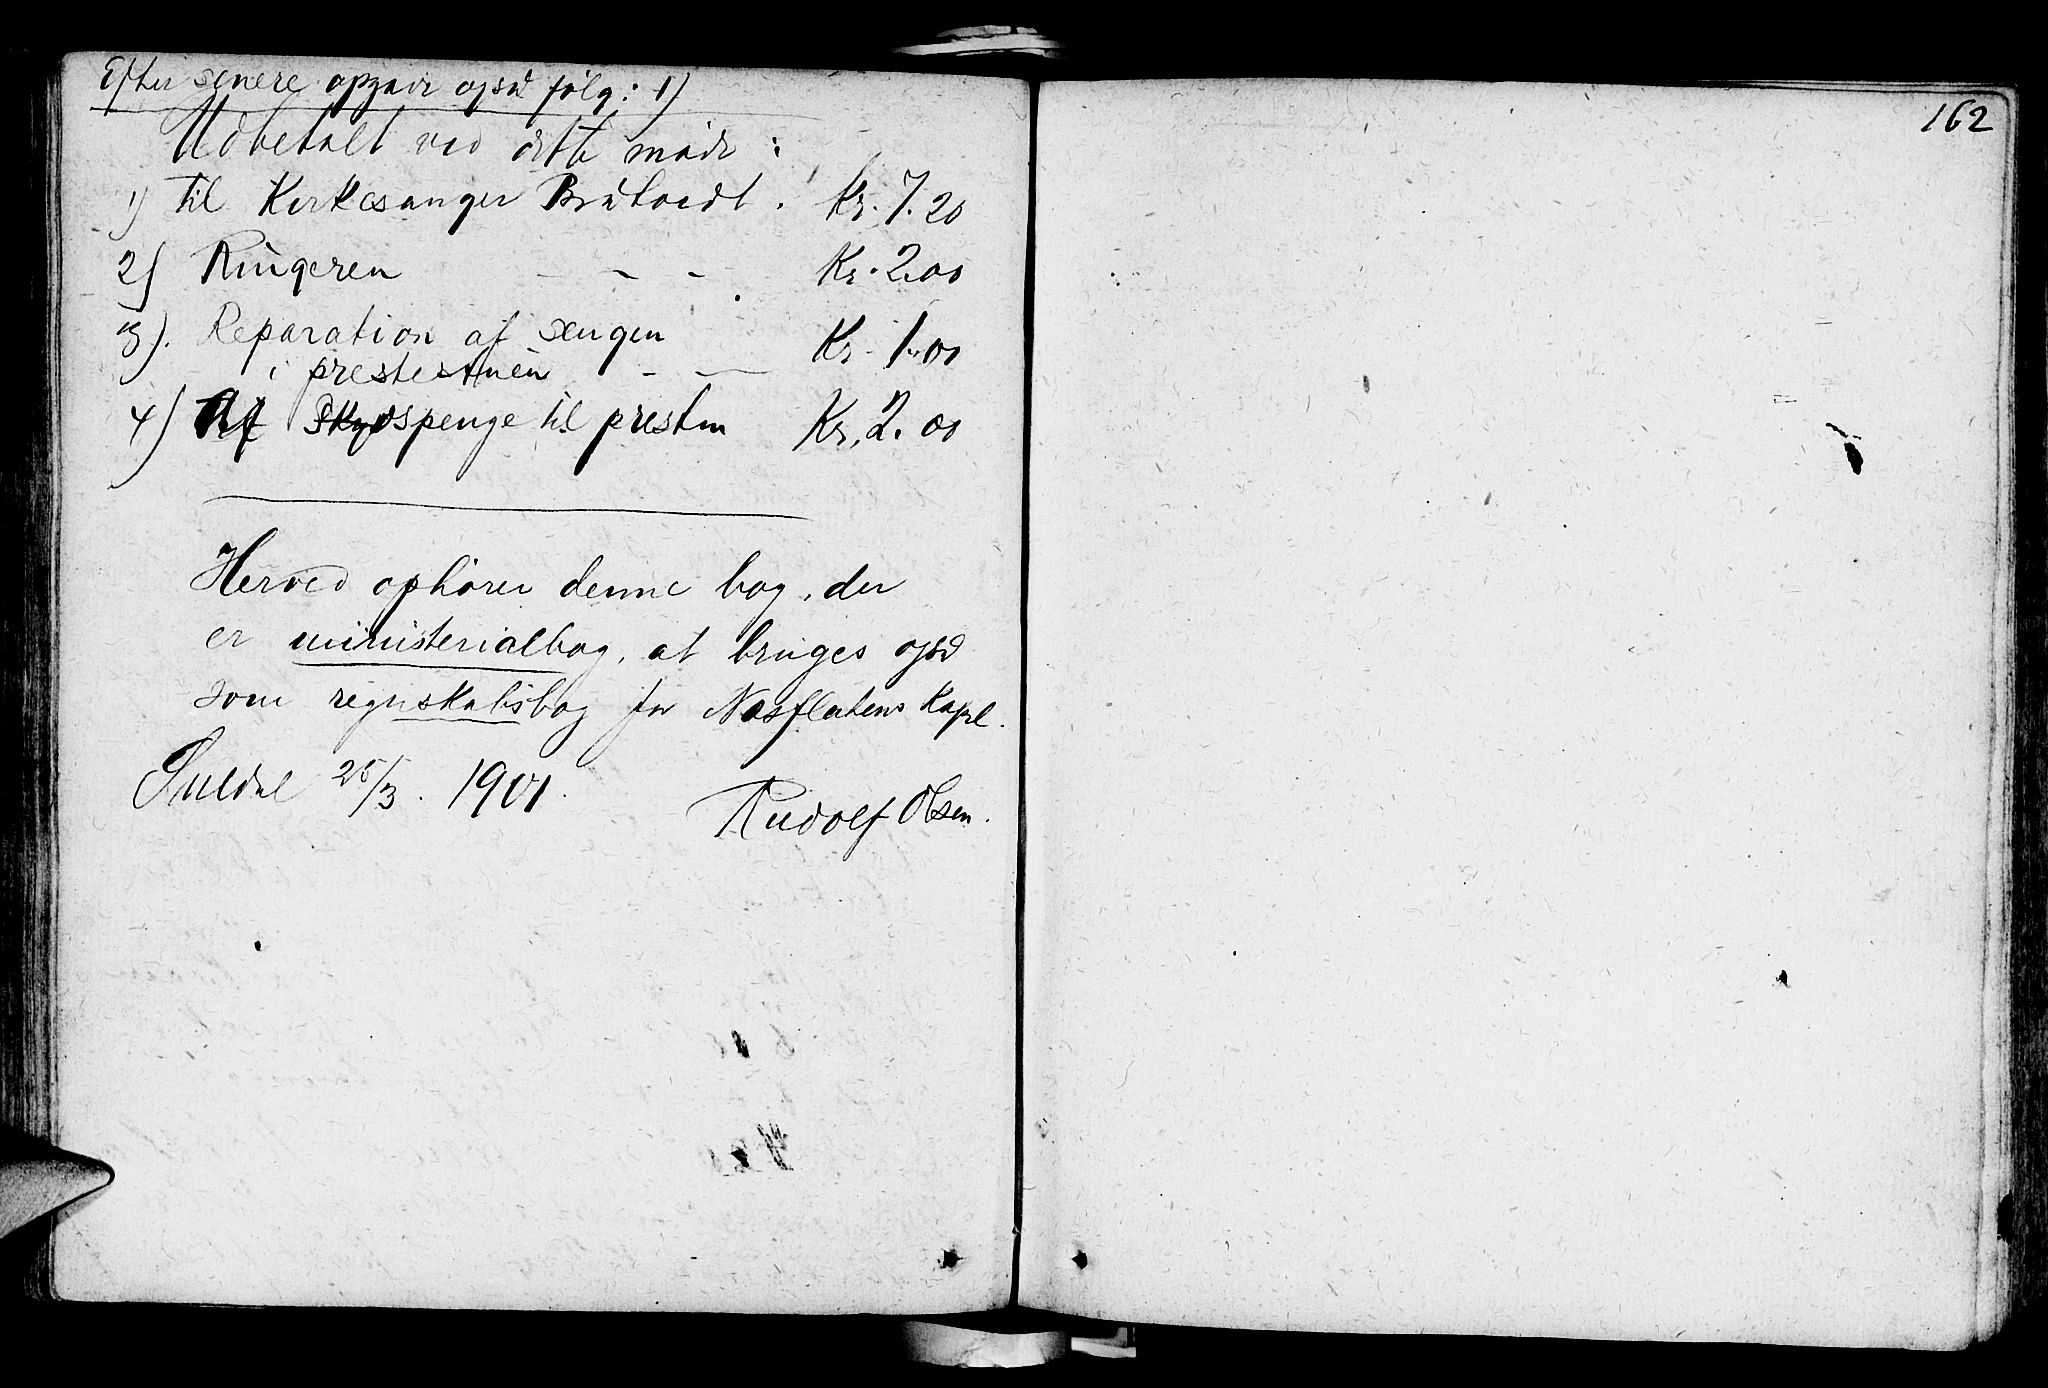 Efter senere opgave også følg: 1)
Udbetalt ved dette møde:
1) til Kirkesanger Bråtveidt. Kr. 7.20
2) Ringeren - - - Kr. 2.00
3). Reparation af sengen
i prestestuen - - Kr. 1.00
4) Skydspenge til presten Kr. 2.00
Herved ophører denne bog, der
er ministerialbog, at bruges også
som regnskabsbog for Nesflatens Kapel.
Suldal 25/3. 1901.
Rudolf Olsen.
162